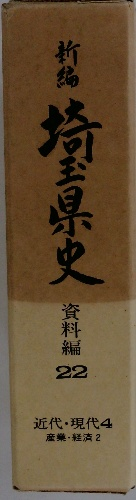 新編
埼玉県史
資料編
22
近代・現代4
産業・経済2